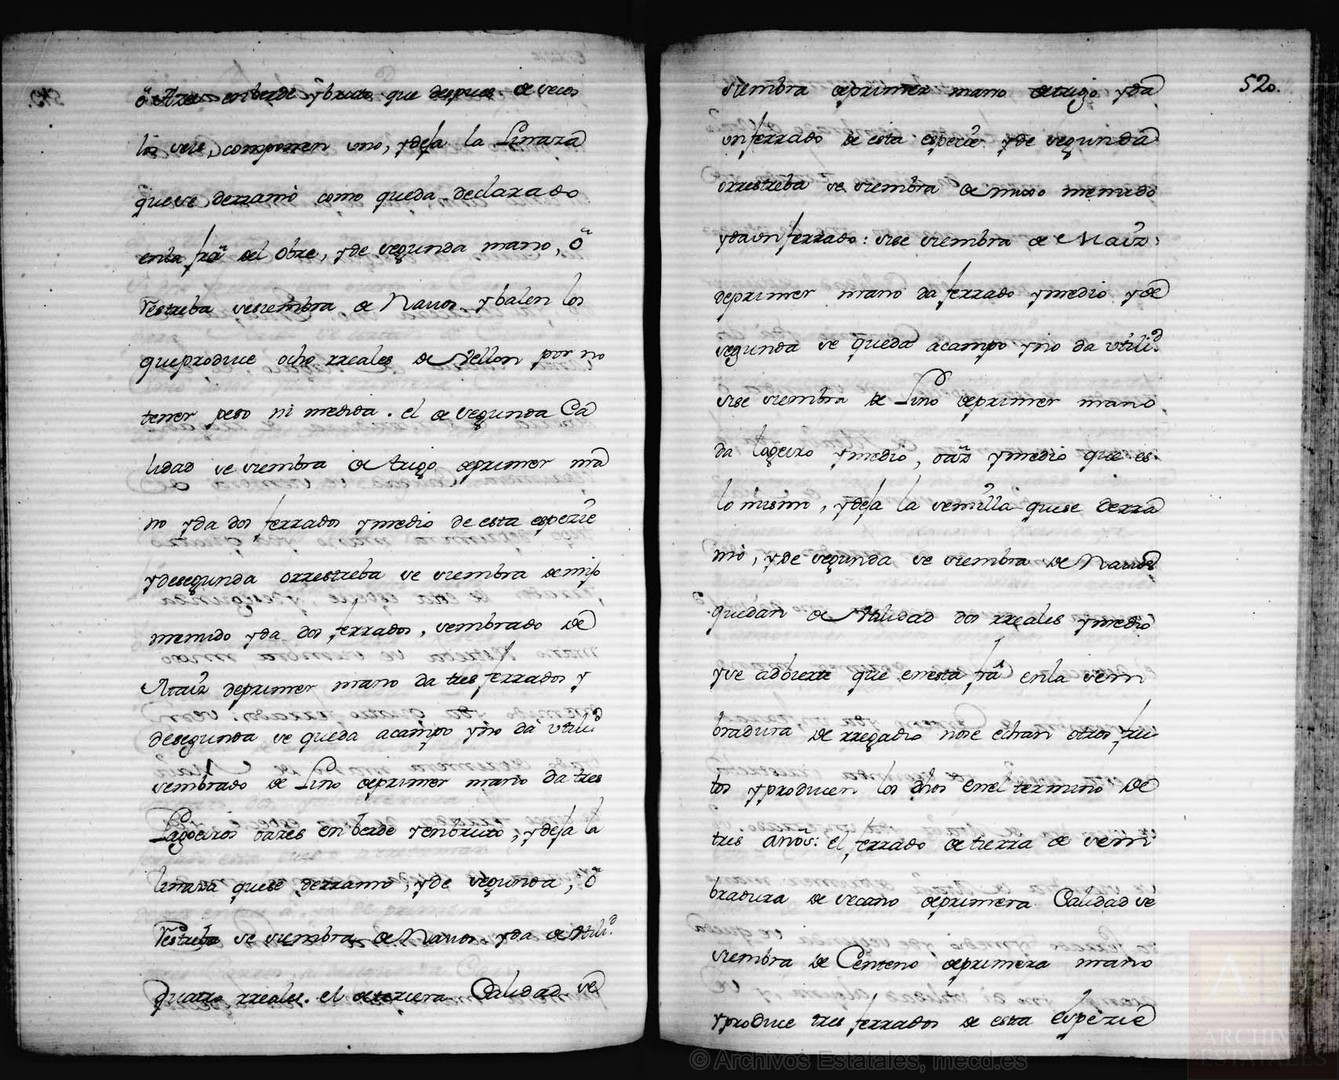 ô Azes enberde ybruto que despues de secos
los seis, componen uno, ydeja la Linaza
q̃ sese derramó como queda declarado
enla frã del obre, yde segunda mano, ô
restreba sesiembra de Navos, ybalen los
queproduce ocho rreales de Vellon por no
tener peso ni medida. el de segunda Ca
lidad se siembra de trigo deprimer ma
no yda dos ferrados ymedio de esta espezie
ydesegunda orrestreba se siembra de mijo
menudo yda dos ferrados, sembrado de
Maiz deprimer mano da tres ferrados y
desegunda se queda acampo yno da utili.d
sembrado de Lino deprimer mano da tres
Lagoeiros oazes enberde yenbruto, ydeja la
linaza quese derramó, yde segunda, ô
restreba se siembra de Navos, yda de Utili.d
quatro rreales. el deterzera Calidad se
520.
siembra deprimer mano detrigo yda
un ferrado de esta espezie yde segunda
orrestreba se siembra de mixo menudo
yda un ferrado: sise siembra de Maiz,
deprimer mano da ferrado ymedio yde
segunda se queda acampo yno da utili.d
sise siembra de Lino deprimer mano
da lagoeiro ymedio, oaz ymedio que es
lo mismo, ydeja la semilla quese derra
mó, yde segunda se siembra de Navos
quedan de Utilidad dos rreales ymedio
yse adbierte que enesta frã enla sem
bradura de rregadio nose echan otros fru
tos yproducen los dhos enel termino de
tres años: el ferrado de tierra de sem
bradura de secano deprimera Calidad se
siembra de Centeno deprimera mano
yproduce tres ferrados de esta espezie
© Archivos Estatales, mecd.es
ARCHIVOS
ESTATALES